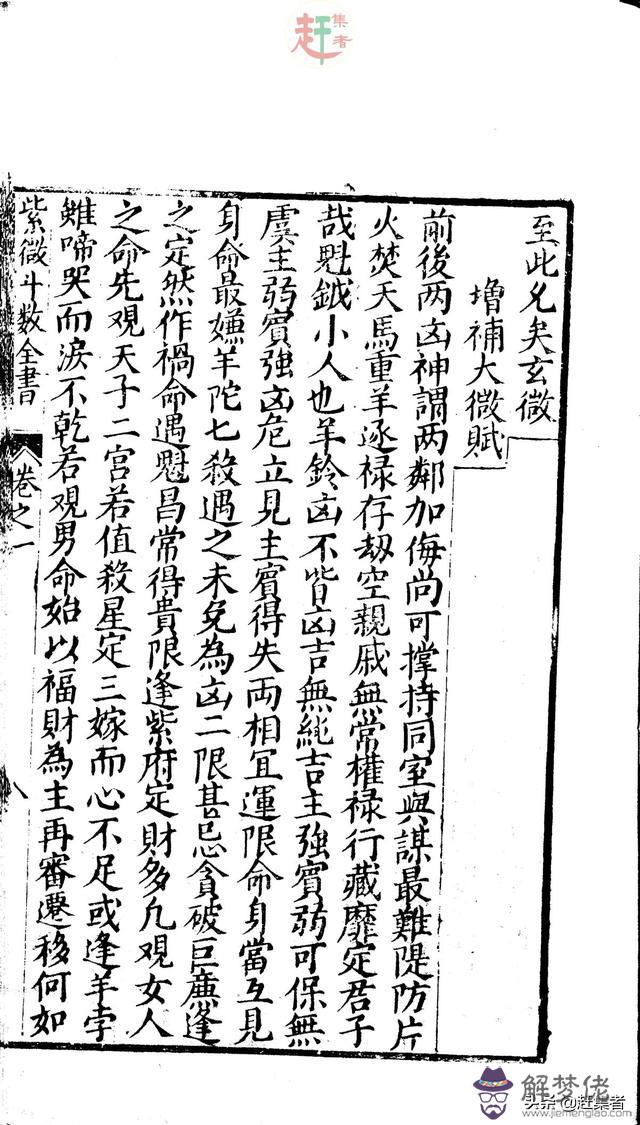 赶集者
至此允矣玄微
增補太微賦
前後两凶神謂两鄰加侮尚可撑持同室與謀最難隄防片
火焚天馬重羊逐禄存劫空親戚無常權禄行藏靡定君子
哉魁鉞小人也羊鈴凶不皆凶吉無純吉主強賓弱可保無
虞主弱賓強凶危立見主賓得失两相冝運限命身當互見
身命最嫌羊陀七殺遇之未免為凶二限甚忌貪破巨廉逢
之定然作禍命遇魁昌常得貴限逢紫府定財多凡觀女人
之命先觀夭子二宮若值殺星定三嫁而心不足或逢羊孛
雖啼哭而淚不乾若觀男命始以福財為主再審遷移何如
紫微斗数全書 卷之一
解梦佬
www.jiemenglao.com
头条@赶集者